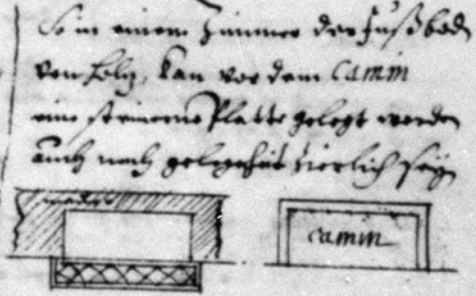 So in einem Zimmer der fußbod
von holz, kan vor dem Camin
eine steinerne Platte gelegt werden
auch nach gelegenheit zierlich seyn
camin